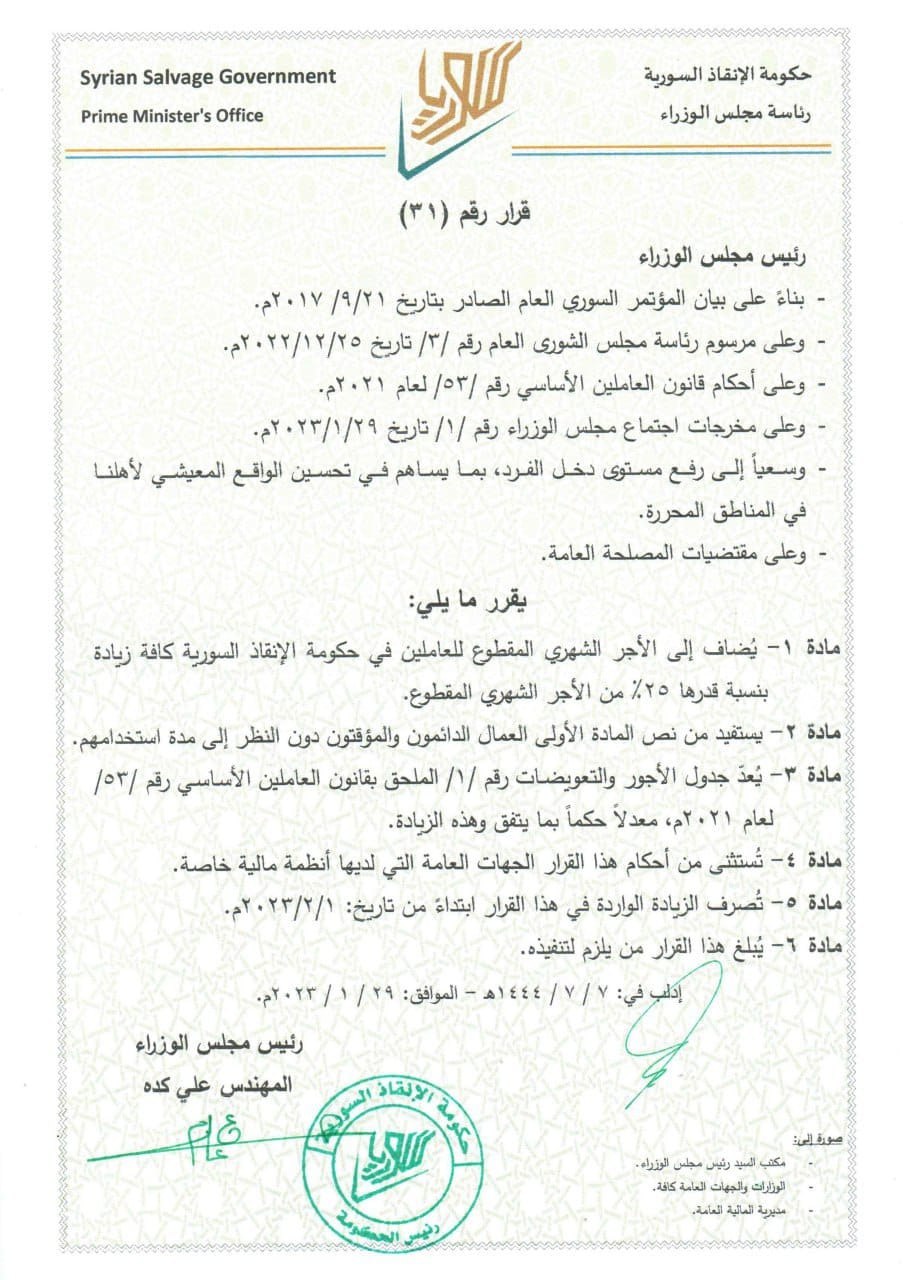 Syrian Salvage Government
Prime Minister's Office
حكومة الإنقاذ السورية
رئاسة مجلس الوزراء
سوريا
قرار رقم (٣١)
رئيس مجلس الوزراء
- بناءً على بيان المؤتمر السوري العام الصادر بتاريخ ٢٠١٧ /٩/٢١م.
- وعلى مرسوم رئاسة مجلس الشورى العام رقم /٣/ تاريخ ٢٠٢٢/١٢/٢٥م.
- وعلى أحكام قانون العاملين الأساسي رقم /٥٣/ لعام ٢٠٢١م.
- وعلى مخرجات اجتماع مجلس الوزراء رقم /١/ تاريخ ٢٠٢٣/١/٢٩م.
- وسعياً إلى رفع مستوى دخل الفرد، بما يساهم في تحسين الواقع المعيشي لأهلنا
في المناطق المحررة.
- وعلى مقتضيات المصلحة العامة.
يقرر ما يلي:
مادة ١- يُضاف إلى الأجر الشهري المقطوع للعاملين في حكومة الإنقاذ السورية كافة زيادة
بنسبة قدرها ٢٥٪ من الأجر الشهري المقطوع.
مادة ٢- يستفيد من نص المادة الأولى العمال الدائمون والمؤقتون دون النظر إلى مدة استخدامهم.
مادة ٣- يُعدّ جدول الأجور والتعويضات رقم /١/ الملحق بقانون العاملين الأساسي رقم /٥٣/
لعام ٢٠٢١م، معدلاً حكماً بما يتفق وهذه الزيادة.
مادة ٤- تُستثنى من أحكام هذا القرار الجهات العامة التي لديها أنظمة مالية خاصة.
مادة ٥- تُصرف الزيادة الواردة في هذا القرار ابتداءً من تاريخ: ٢٠٢٣/٢/١م.
مادة ٦- يُبلغ هذا القرار من يلزم لتنفيذه.
إدلب في: ٧ / ٧ / ١٤٤٤هـ – الموافق: ٢٩ / ١ / ٢٠٢٣م.
رئيس مجلس الوزراء
المهندس علي كده
حكومة الإنقاذ السورية
سوريا
رئيس الحكومة
صورة إلى:
- مكتب السيد رئيس مجلس الوزراء.
- الوزارات والجهات العامة كافة.
- مديرية المالية العامة.